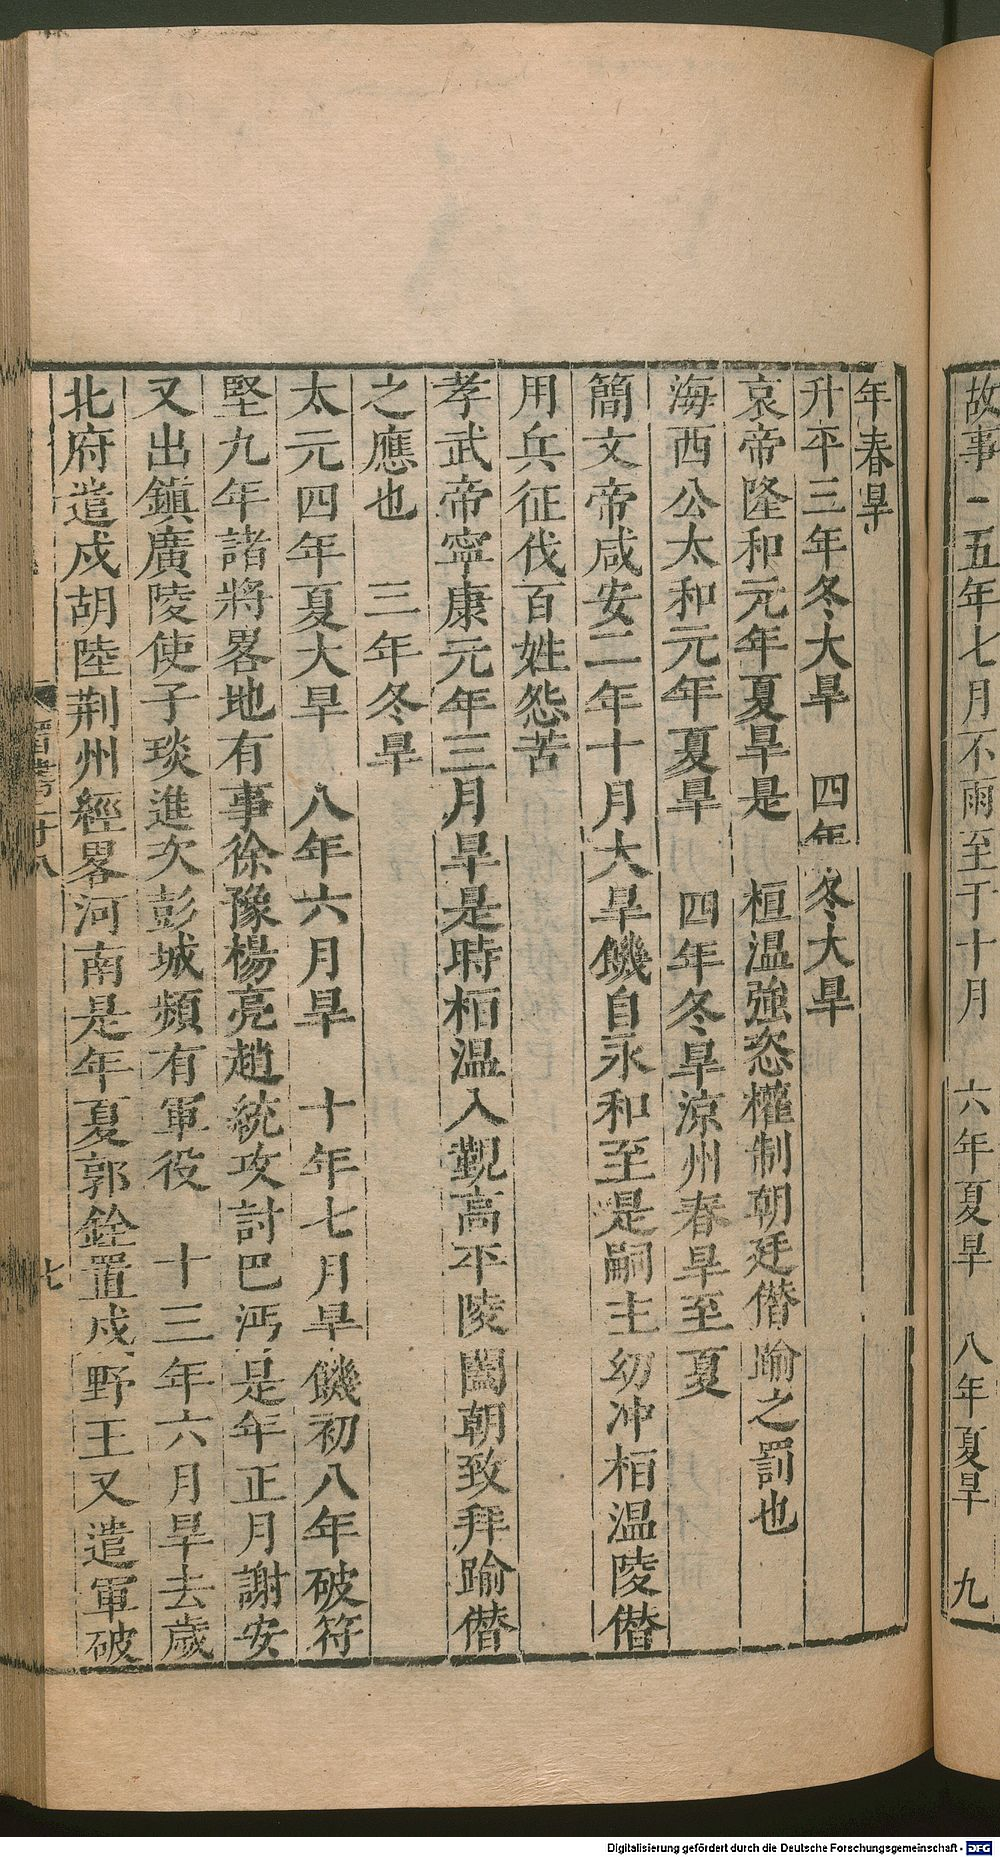 故事二五年七月不雨至于十月　六年夏旱　八年夏旱　九
年春旱
升平三年冬大旱　四年冬大旱
哀帝隆和元年夏旱是　桓温強恣權制朝廷僭踰之罰也
海西公太和元年夏旱　四年冬旱涼州春旱至夏
簡文帝咸安二年十月大旱饑自永和至是嗣主幼冲桓温陵僭
用兵征伐百姓怨苦
孝武帝寧康元年三月旱是時桓温入覲高平陵闔朝致拜踰僭
之應也　三年冬旱
太元四年夏大旱　八年六月旱　十年七月旱饑初八年破苻
堅九年諸將畧地有事徐豫楊亮趙統攻討巴沔是年正月謝安
又出鎮廣陵使子琰進次彭城頻有軍役　十三年六月旱去歲
北府遣戍胡陸荆州經畧河南是年夏郭銓置戍野王又遣軍破
七
Digitalisierung gefördert durch die Deutsche Forschungsgemeinschaft - DFG